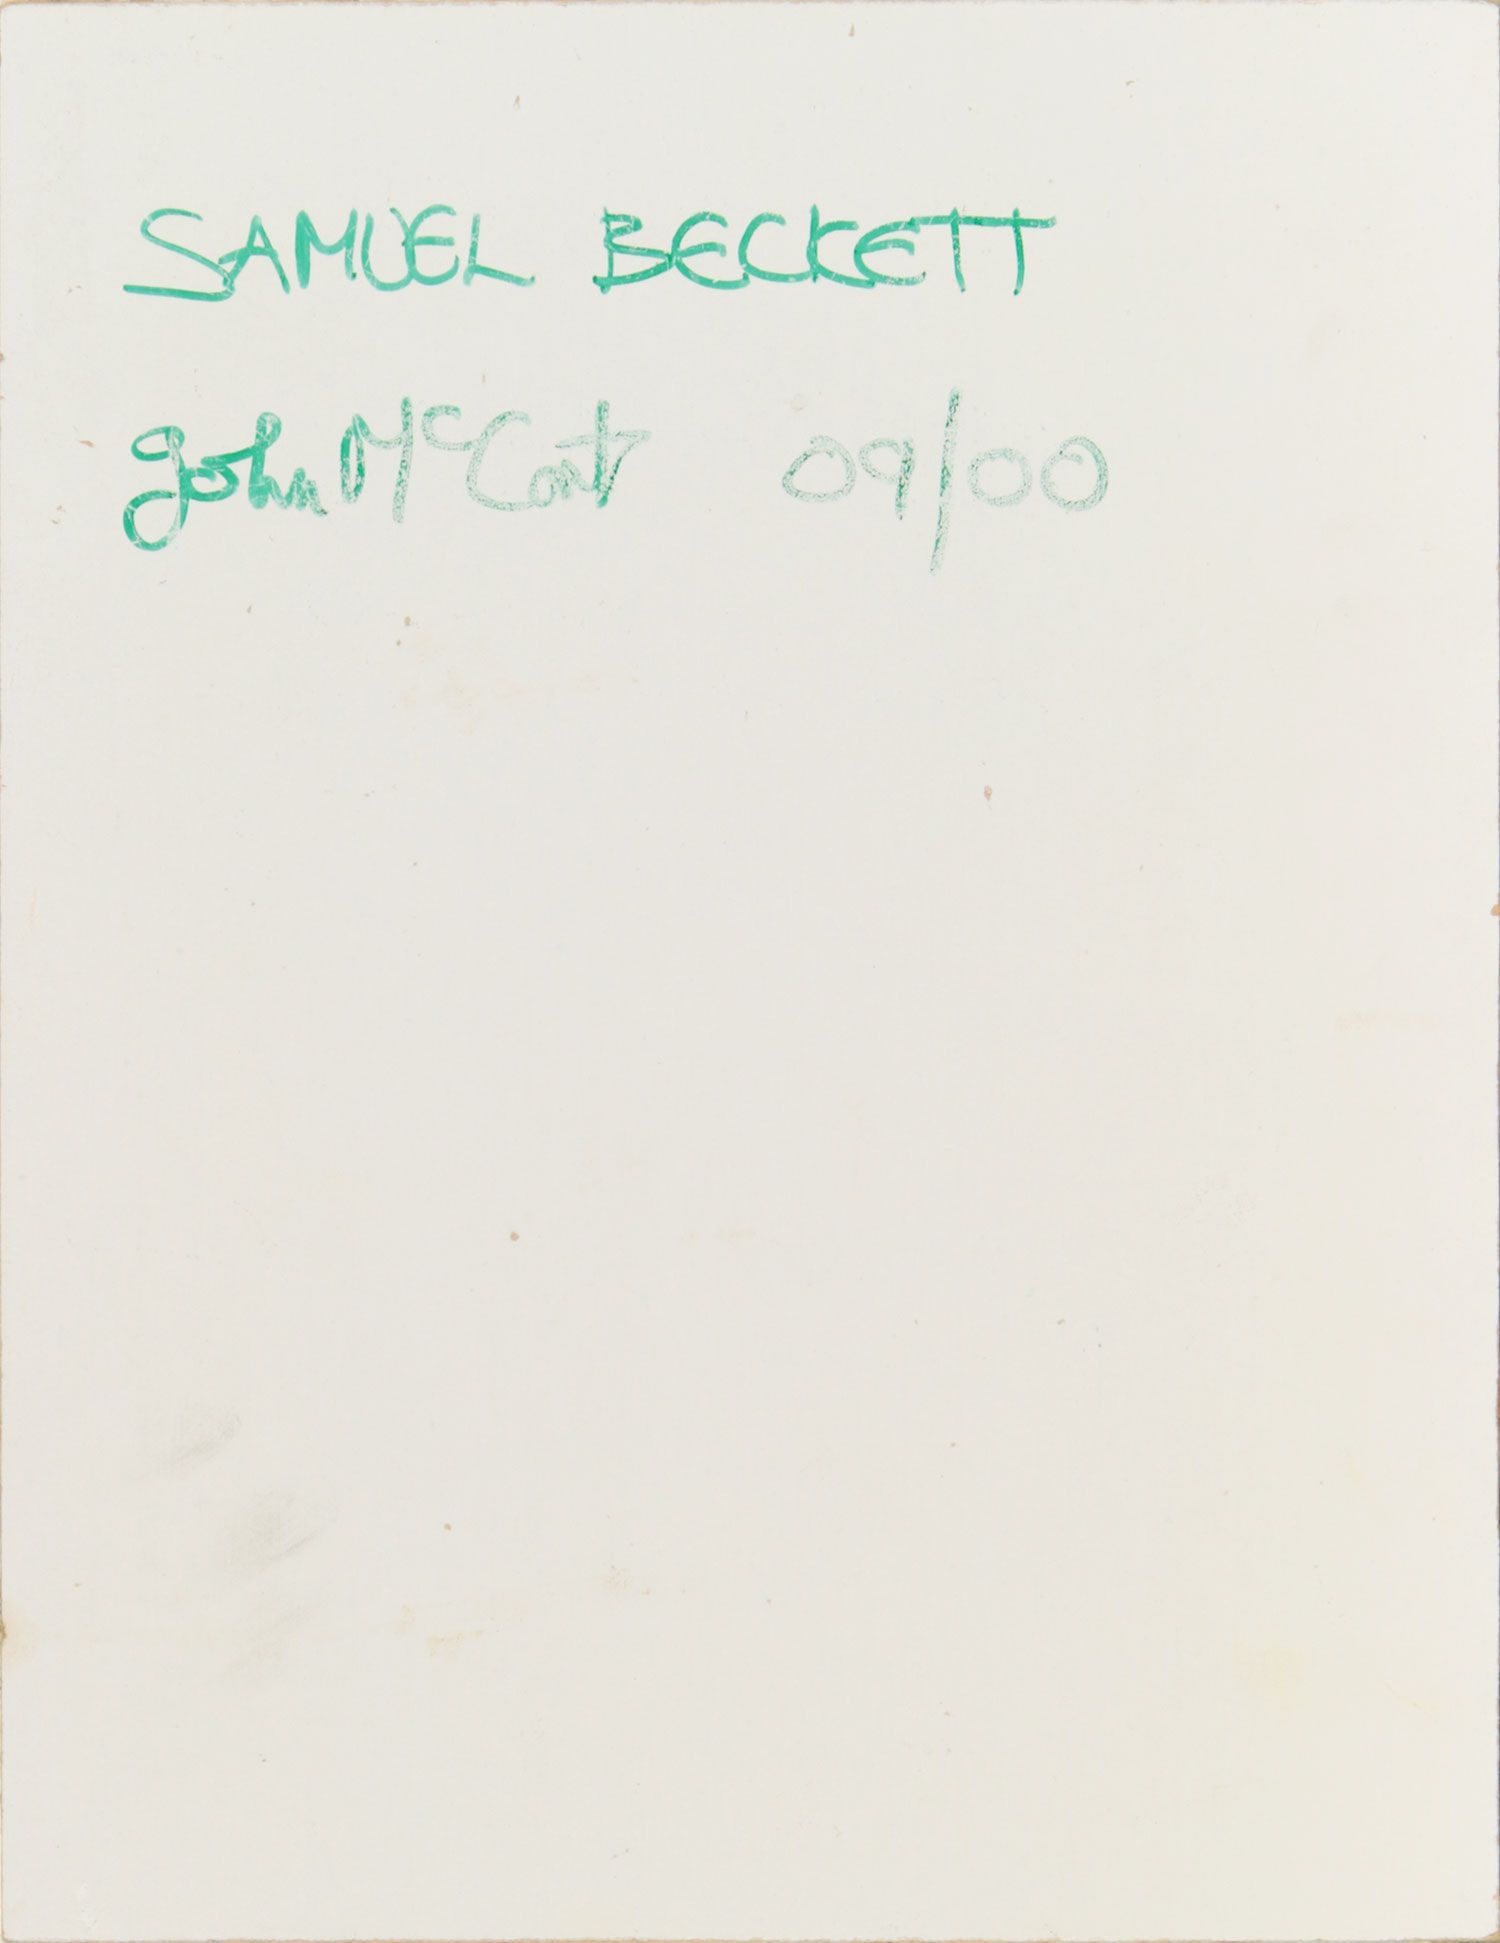 SAMUEL BECKETT
John McCont 09/00